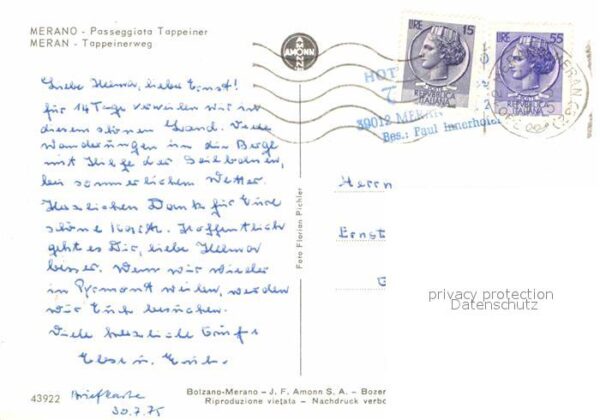 MERANO - Passeggiata Tappeiner
MERAN - Tappeinerweg
Liebe Helma, lieber Ernst!
für 14 Tage verweilen wir in
diesem schönen Land. Viele
Wanderungen in die Berge
mit Hilfe der Seilbahnen,
bei sommerlichem Wetter.
Herzlichen Dank für Eure
schöne Karte. Hoffentlich
geht es Dir, liebe Helma
besser. Wenn wir wieder
in Pyrmont weilen, werden
wir Euch besuchen.
Viele herzliche Grüße
Else u. Erich.
43922
Briefkarte
30.7.75
AMONN
LIRE 15
REPUBBLICA
ITALIANA
LIRE 55
REPUBBLICA
ITALIANA
HOT
39012 MERAN
Bes.: Paul Innerhofer
MERANO
Herrn
Ernst
Foto Florian Pichler
privacy protection
Datenschutz
Bolzano-Merano - J. F. Amonn S. A. - Bozen
Riproduzione vietata - Nachdruck verbo